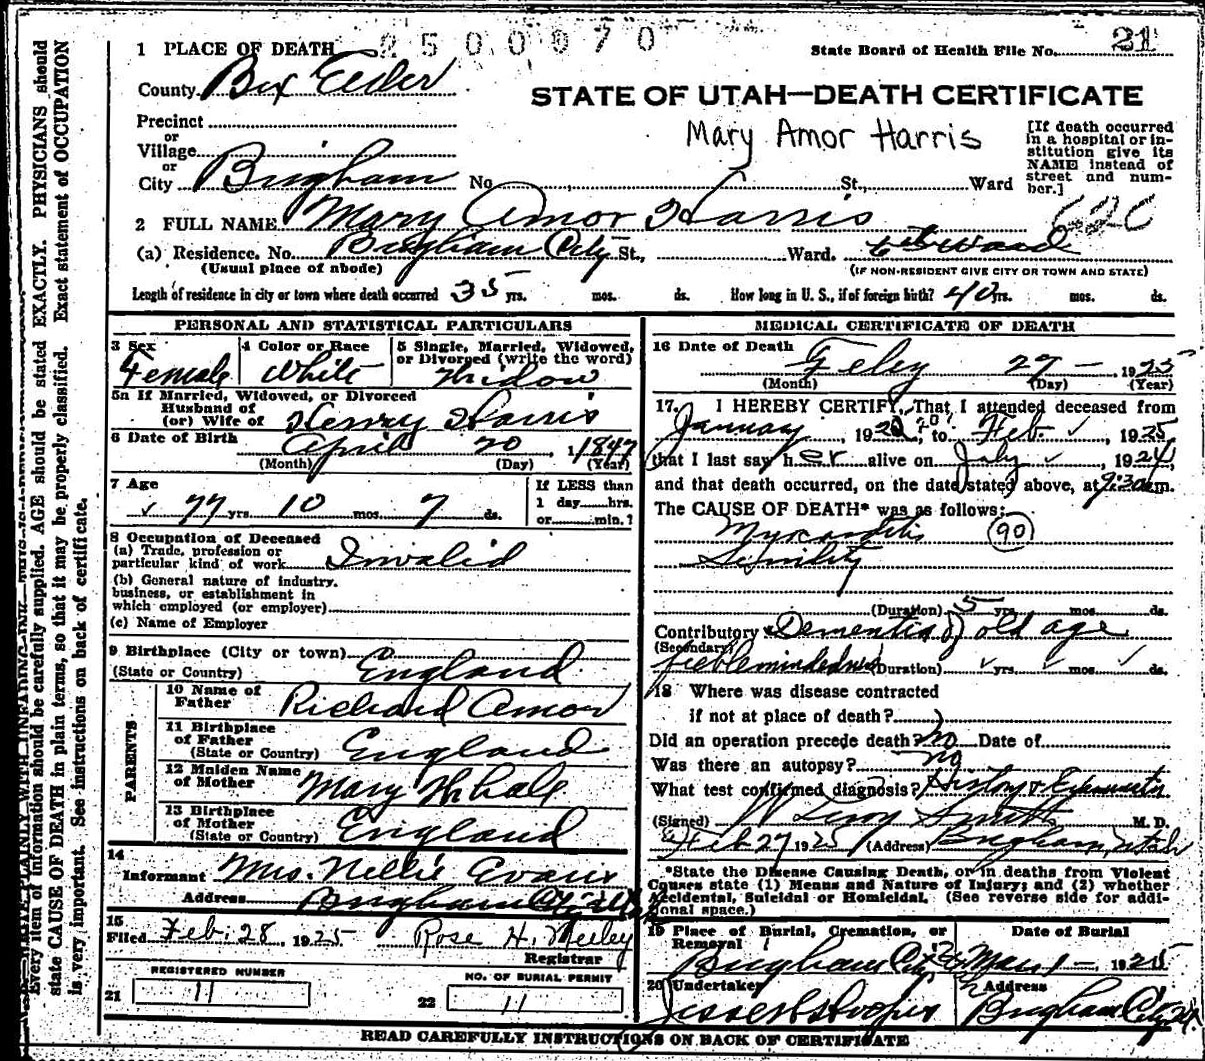 1 PLACE OF DEATH 2500070 State Board of Health File No. 21
County Box Elder
STATE OF UTAH—DEATH CERTIFICATE
Mary Amor Harris
Precinct
or
Village
or
City Brigham No. St., Ward
[If death occurred
in a hospital or in-
stitution give its
NAME instead of
street and num-
ber.]
2 FULL NAME Mary Amor Harris
(a) Residence. No. Brigham City St., Ward.
(Usual place of abode) (IF NON-RESIDENT GIVE CITY OR TOWN AND STATE)
Length of residence in city or town where death occurred 35 yrs. mos. ds. How long in U. S., if of foreign birth? 40 yrs. mos. ds.
PERSONAL AND STATISTICAL PARTICULARS
3 Sex 4 Color or Race 5 Single, Married, Widowed,
or Divorced (write the word)
Female White Widow
5a If Married, Widowed, or Divorced
Husband of
(or) Wife of Henry Harris
6 Date of Birth April 20 1847
(Month) (Day) (Year)
7 Age If LESS than
1 day hrs.
77 yrs. 10 mos. 7 ds. or min.?
8 Occupation of Deceased
(a) Trade, profession or
particular kind of work Invalid
(b) General nature of industry.
business, or establishment in
which employed (or employer)
(c) Name of Employer
9 Birthplace (City or town)
(State or Country) England
PARENTS
10 Name of
Father Richard Amor
11 Birthplace
of Father
(State or Country) England
12 Maiden Name
of Mother Mary Whale
13 Birthplace
of Mother
(State or Country) England
14
Informant Mrs. Nellie Evans
Address Brigham City
15
Filed Feb. 28, 1925 Rose H. Neeley
Registrar
REGISTERED NUMBER NO. OF BURIAL PERMIT
21 11 22 11
MEDICAL CERTIFICATE OF DEATH
16 Date of Death Feby 27 – 1925
(Month) (Day) (Year)
17. I HEREBY CERTIFY, That I attended deceased from
January, 1920, to Feb., 1925,
that I last saw her alive on July, 1924,
and that death occurred, on the date stated above, at 9:30 a.m.
The CAUSE OF DEATH* was as follows:
Myocarditis 90
Senility
(Duration) 5 yrs. mos. ds.
Contributory Dementia of old age
(Secondary)
feeblemindedness (Duration) yrs. mos. ds.
18 Where was disease contracted
if not at place of death?
Did an operation precede death? no Date of
Was there an autopsy? no
What test confirmed diagnosis? History &
(Signed) W Leroy Smith M. D.
Feb 27 1925 (Address) Brigham, Utah
*State the Disease Causing Death, or in deaths from Violent
Causes state (1) Means and Nature of Injury; and (2) whether
Accidental, Suicidal or Homicidal. (See reverse side for addi-
tional space.)
19 Place of Burial, Cremation, or Date of Burial
Removal
Brigham City Mar 1 – 1925
20 Undertaker Address
Brigham City
READ CAREFULLY INSTRUCTIONS ON BACK OF CERTIFICATE
Every item of information should be carefully supplied. AGE should be stated EXACTLY. PHYSICIANS should
state CAUSE OF DEATH in plain terms, so that it may be properly classified. Exact statement of OCCUPATION
is very important. See instructions on back of certificate.